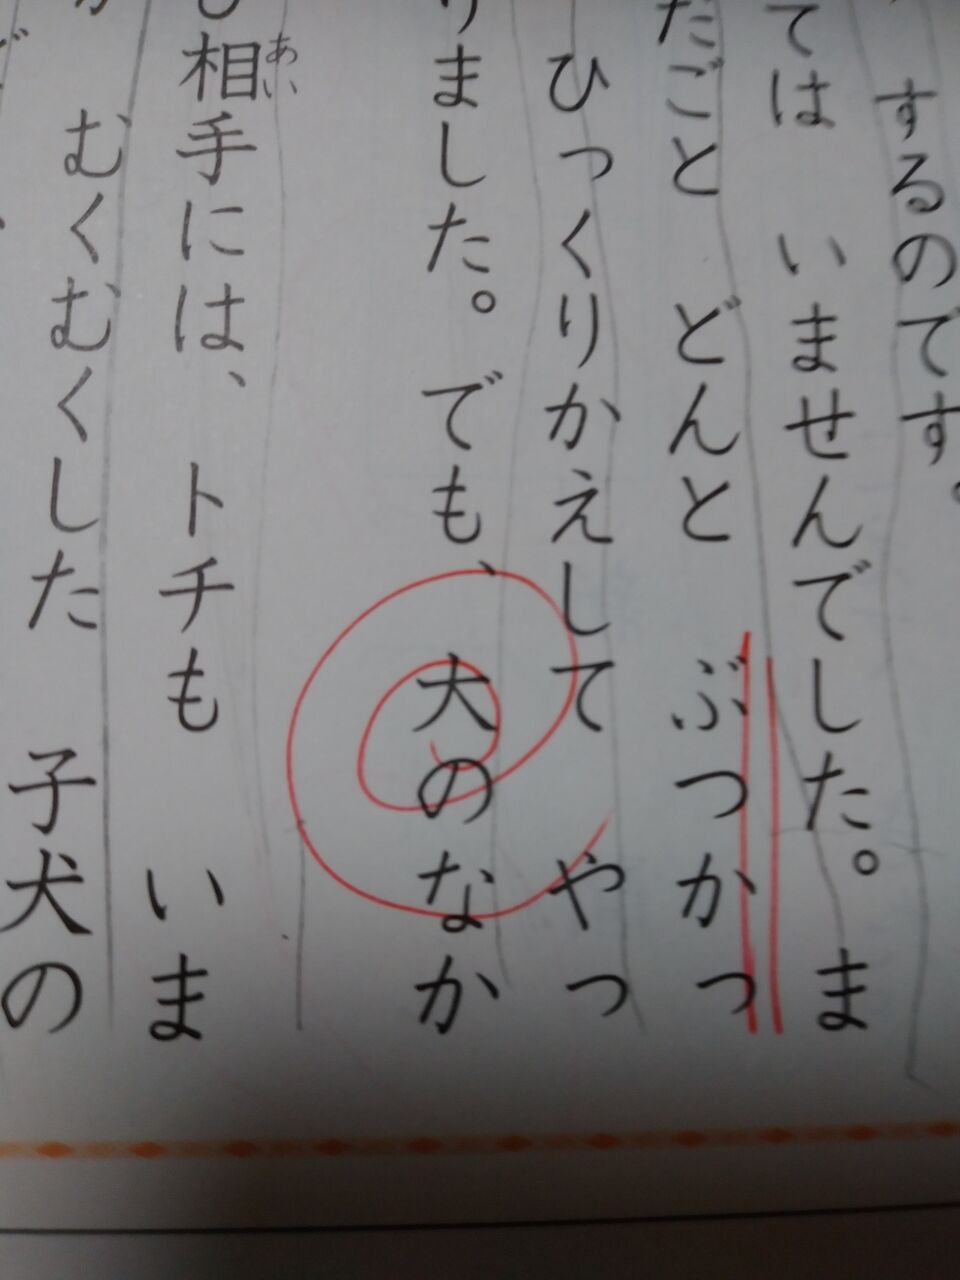 するのです。
ては いませんでした。ま
だごと どんと ぶつかっ
ひっくりかえして やっ
りました。でも、犬のなか
相手には、トチも いま
あい
むくむくした 子犬の